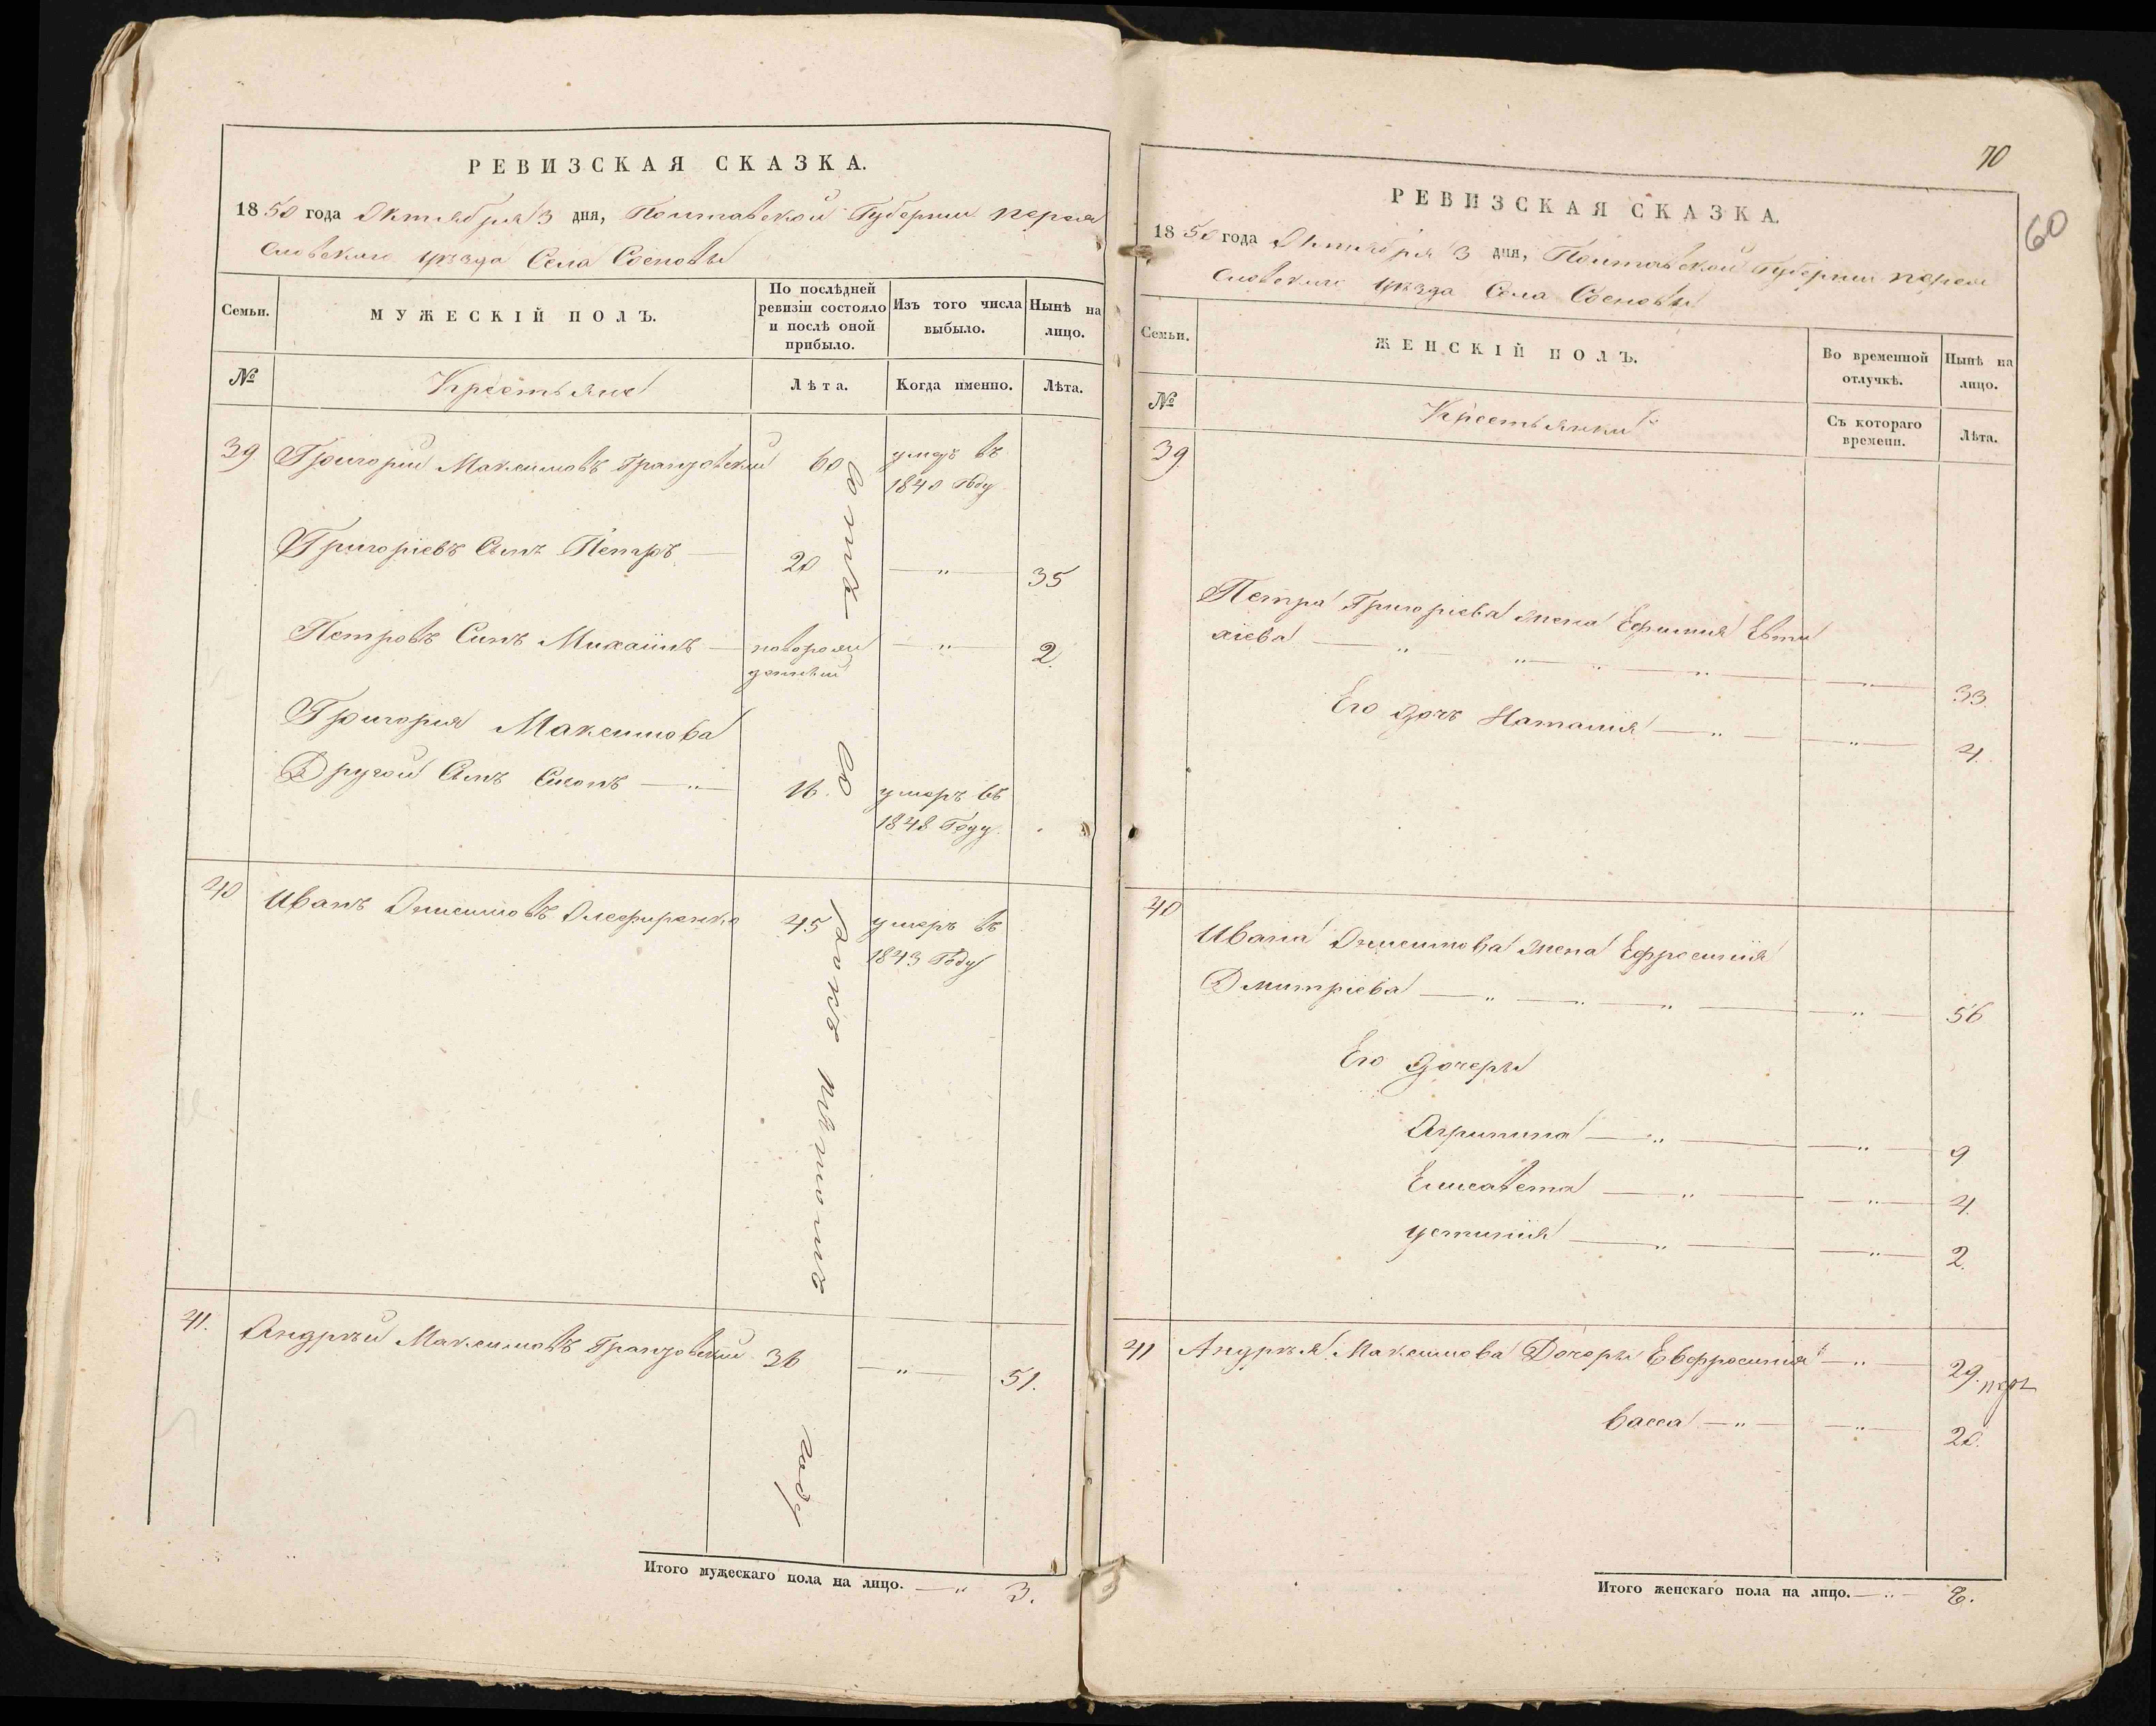 РЕВИЗСКАЯ СКАЗКА.
1850 года Октября 3 дня, Полтавской Губернии Перея
словскаго уѣзда Села Сосновы
Семьи.
МУЖЕСКІЙ ПОЛЪ.
По послѣдней
ревизіи состояло
и послѣ оной
прибыло.
Изъ того числа
выбыло.
Нынѣ на
лицо.
№
Крестьяне
Лѣта.
Когда именно.
Лѣта.
39 Григорій Максимовъ 60 умеръ въ
1840 Году
Григоріевъ Сынъ Петръ — 20 — „ — 35
Петровъ Сынъ Михаилъ — новорож — „ — 2.
денный
Григорія Максимова
Другой Сынъ — „ — 16. умеръ въ
1848 Году.
40 Иванъ Онисимовъ Олефиренко 45 умеръ въ
1843 Году
41. Андрей Максимовъ 36 — „ — 51.
году
Итого мужескаго пола на лицо. — „ 3.
70
60
РЕВИЗСКАЯ СКАЗКА.
1850 года Октября 3 дня, Полтавской Губернии Перея
словскаго уѣзда Села Сосновы
Семьи.
ЖЕНСКІЙ ПОЛЪ.
Во временной
отлучкѣ.
Нынѣ на
лицо.
№
Крестьянки
Съ котораго
времени.
Лѣта.
39
Петра Григоріева жена Ефимия Евти
хіева — „ — „ — „ — „ — 33.
Его дочь Наталия — „ — „ — 4.
40
Ивана Онисимова жена Ефросиния
Дмитріева — „ — „ — „ — „ — 56
Его дочери
Агрипина — „ — „ — 9
Елисавета — „ — „ — 4.
Устиния — „ — „ — 2.
41 Андрея Максимова Дочери Евфросиния — „ — 29.
Васса — „ — „ — 20.
Итого женскаго пола на лицо. — „ — 8.